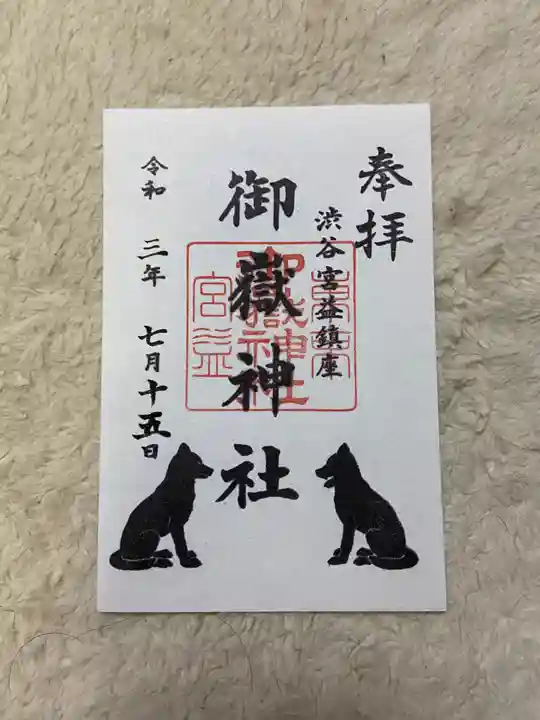 奉拝
渋谷宮益鎮座
御嶽神社
令和 三年 七月十五日
宮益
御嶽神社